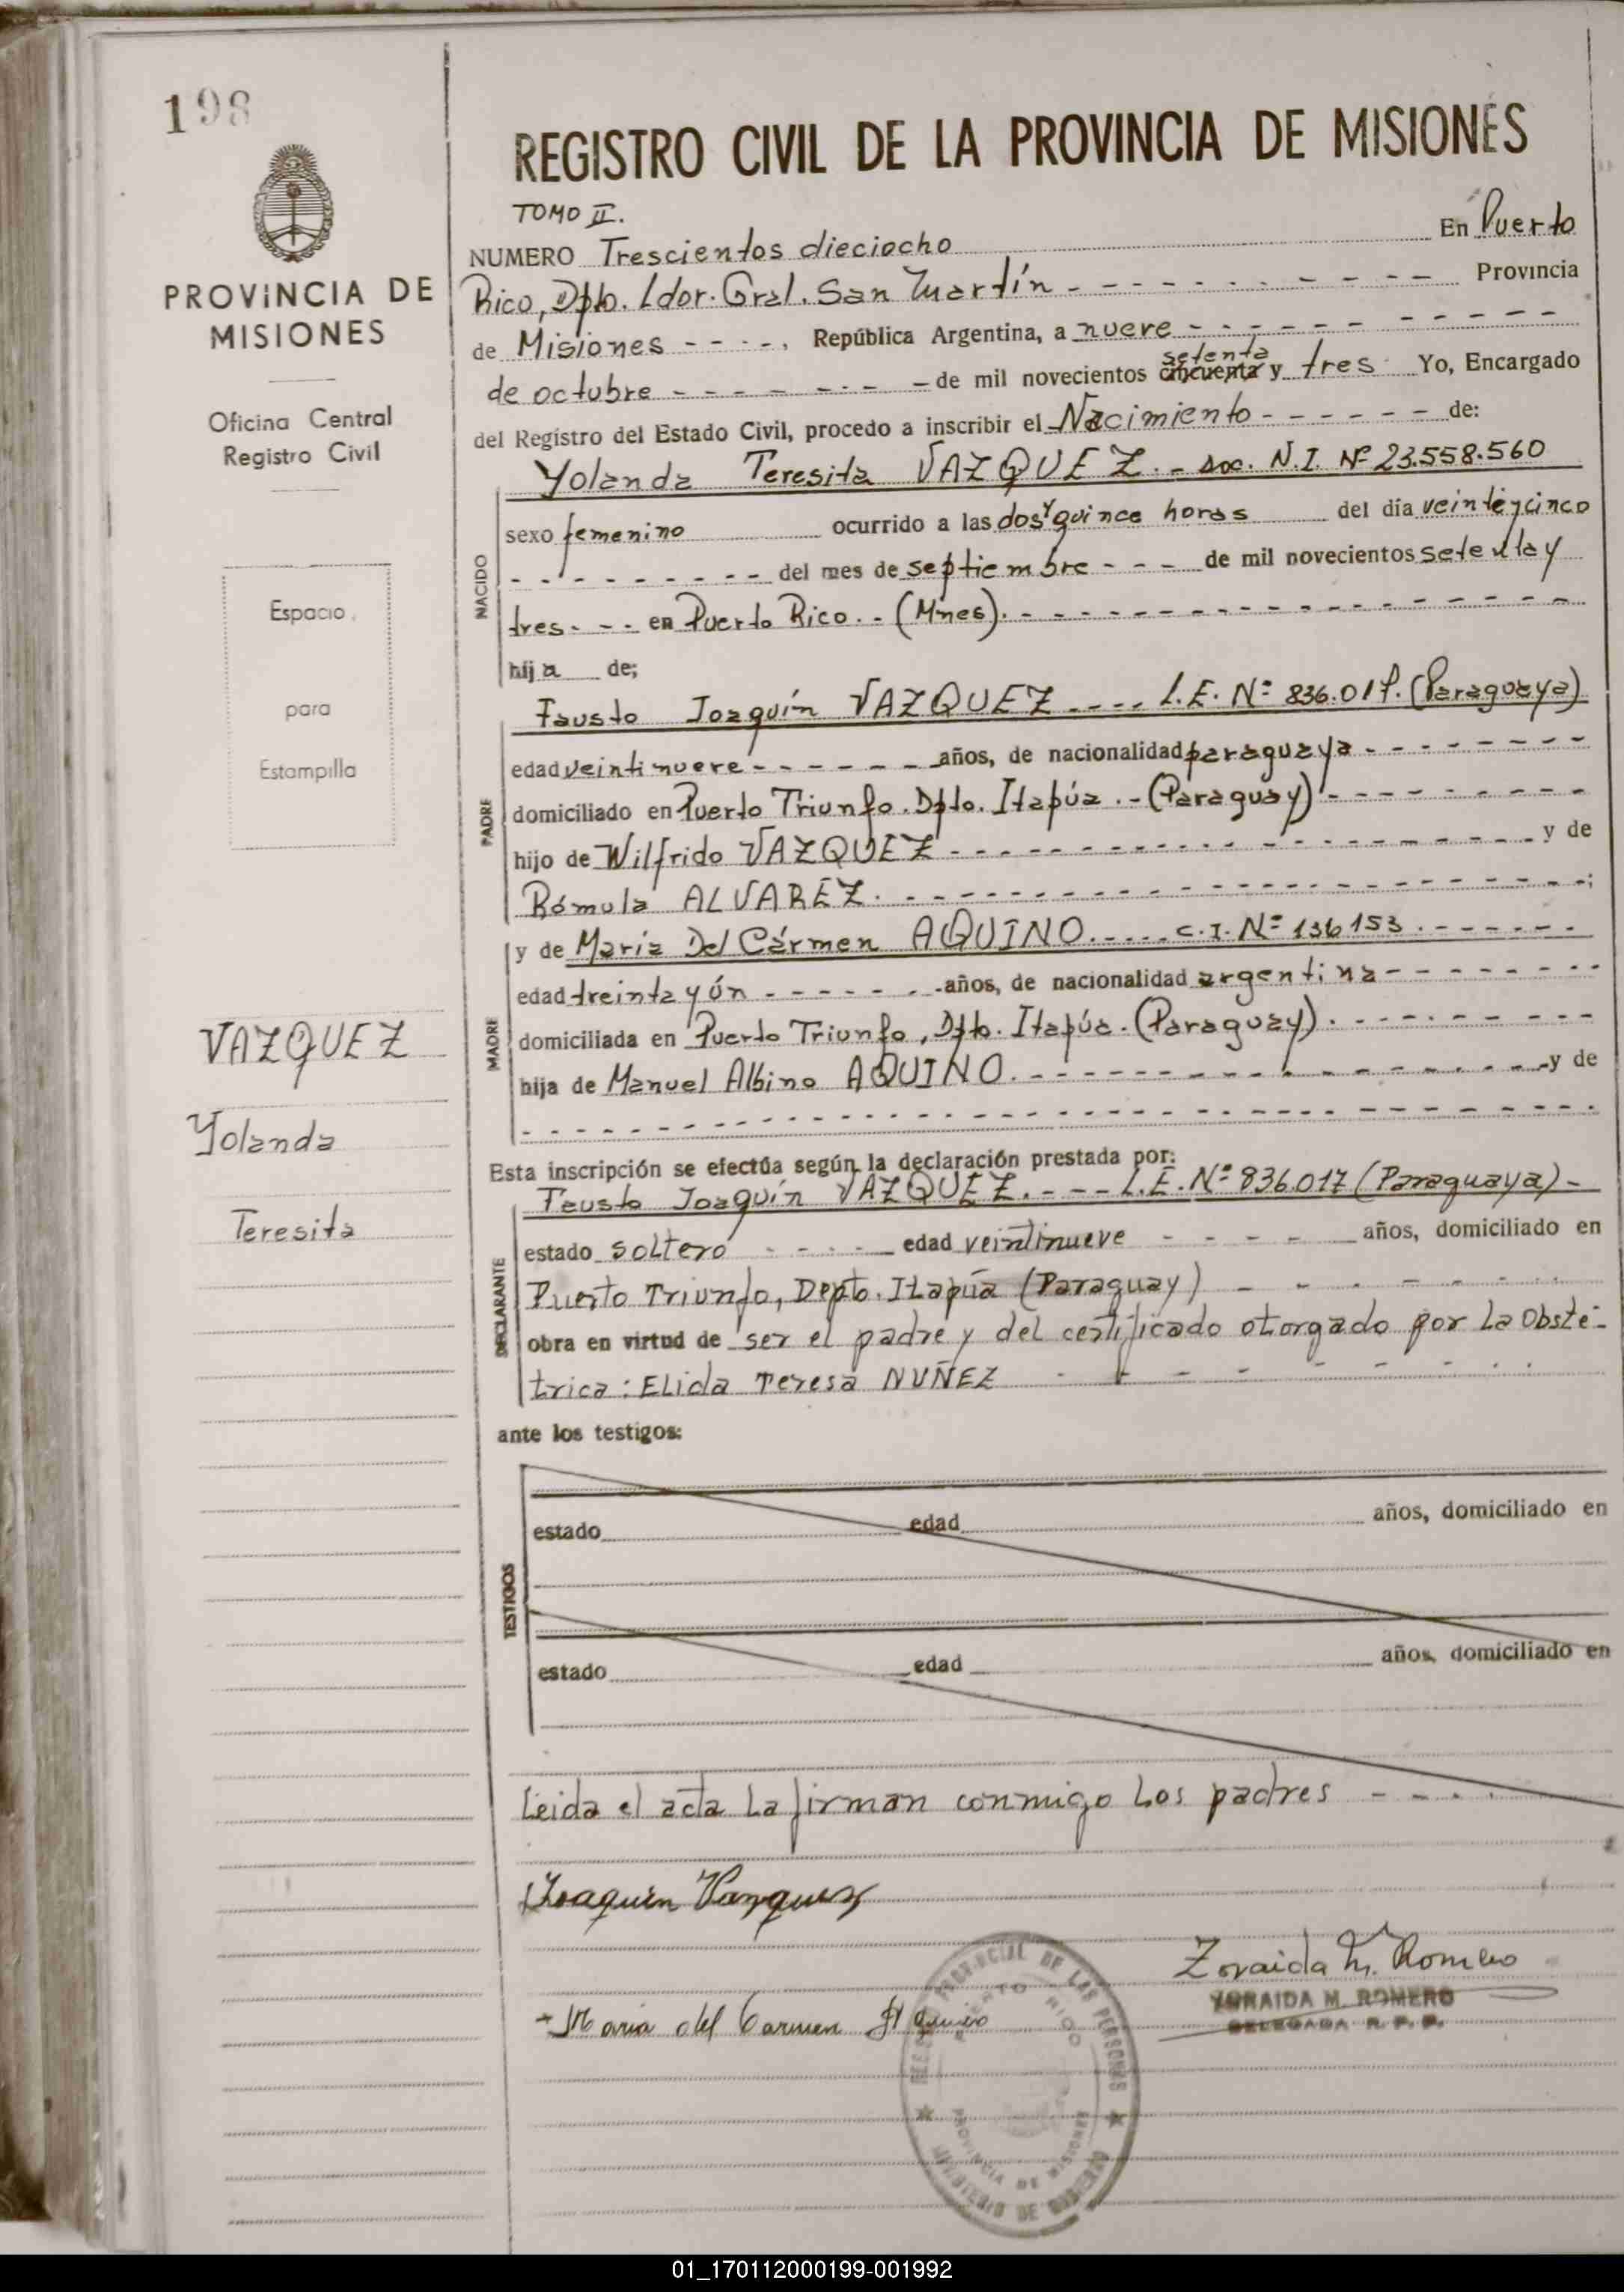 198
PROVINCIA DE
MISIONES
Oficina Central
Registro Civil
Espacio
para
Estampilla
VAZQUEZ
Yolanda
Teresita
REGISTRO CIVIL DE LA PROVINCIA DE MISIONES
TOMO II.
NUMERO Trescientos dieciocho En Puerto
Rico, Dpto. Ldor. Gral. San Martín - - - - - - - - - - Provincia
de Misiones - - - -, República Argentina, a nueve - - - - - - - - - - -
setenta
de octubre - - - - - - - - de mil novecientos cincuenta y tres Yo, Encargado
del Registro del Estado Civil, procedo a inscribir el Nacimiento - - - - - - de:
Yolanda Teresita VAZQUEZ. - doc. N.I. Nº 23.558.560
NACIDO
sexo femenino ocurrido a las dos y quince horas del día veinteycinco
- - - - - - - - - del mes de septiembre - - - de mil novecientos setenta y
tres - - - en Puerto Rico. - (Mnes). - - - - - - - - - - - - - - -
hija de;
PADRE
Fausto Joaquín VAZQUEZ - - - - L.E. Nº 836.017. (Paraguaya)
edad veintinueve - - - - - - años, de nacionalidad paraguaya - - - - - - - -
domiciliado en Puerto Triunfo. Dpto. Itapúa. - (Paraguay) - - - - - - - -
hijo de Wilfrido VAZQUEZ - - - - - - - - - - - - - - - - y de
Rómula ALVAREZ. - - - - - - - - - - - - - - - - - - - ;
MADRE
y de María Del Cármen AQUINO. - - - - C.I. Nº 136153. - - - - - -
edad treinta y ún - - - - - - años, de nacionalidad argentina - - - - - - - -
domiciliada en Puerto Triunfo, Dpto. Itapúa. (Paraguay). - - - - - - - - -
hija de Manuel Albino AQUINO. - - - - - - - - - - - - - - - y de
- - - - - - - - - - - - - - - - - - - - - - - -
Esta inscripción se efectúa según la declaración prestada por:
DECLARANTE
Fausto Joaquín VAZQUEZ. - - - L.E. Nº 836.017 (Paraguaya) -
estado soltero - - - - edad veintinueve - - - - años, domiciliado en
Puerto Triunfo, Depto. Itapúa (Paraguay) - - - - - - -
obra en virtud de ser el padre y del certificado otorgado por la Obsté-
trica: Elida Teresa NUÑEZ - - - - - - - -
ante los testigos:
TESTIGOS
estado edad años, domiciliado en
estado edad años, domiciliado en
Leida el acta la firman conmigo los padres - - - -
Joaquin Vazquez
Zoraida M. Romero
ZORAIDA M. ROMERO
DELEGADA R. P. P.
Maria del Carmen Aquino
REGISTRO PROVINCIAL DE LAS PERSONAS
PUERTO RICO
PROVINCIA DE MISIONES
MINISTERIO DE GOBIERNO
01_170112000199-001992